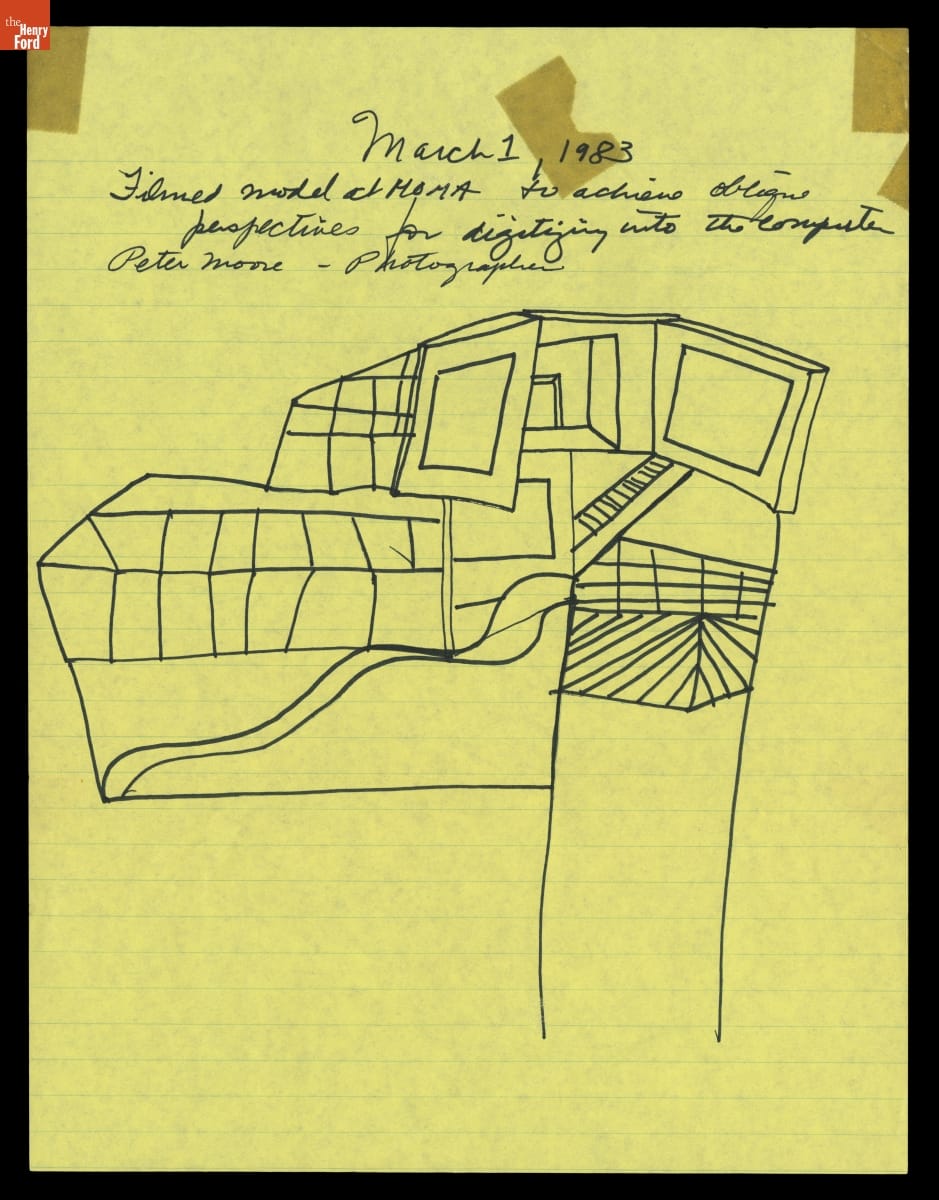 the
Henry
Ford
March 1, 1983
Filmed model at MOMA to achieve oblique
perspectives for digitizing into the computer
Peter Moore - Photographer